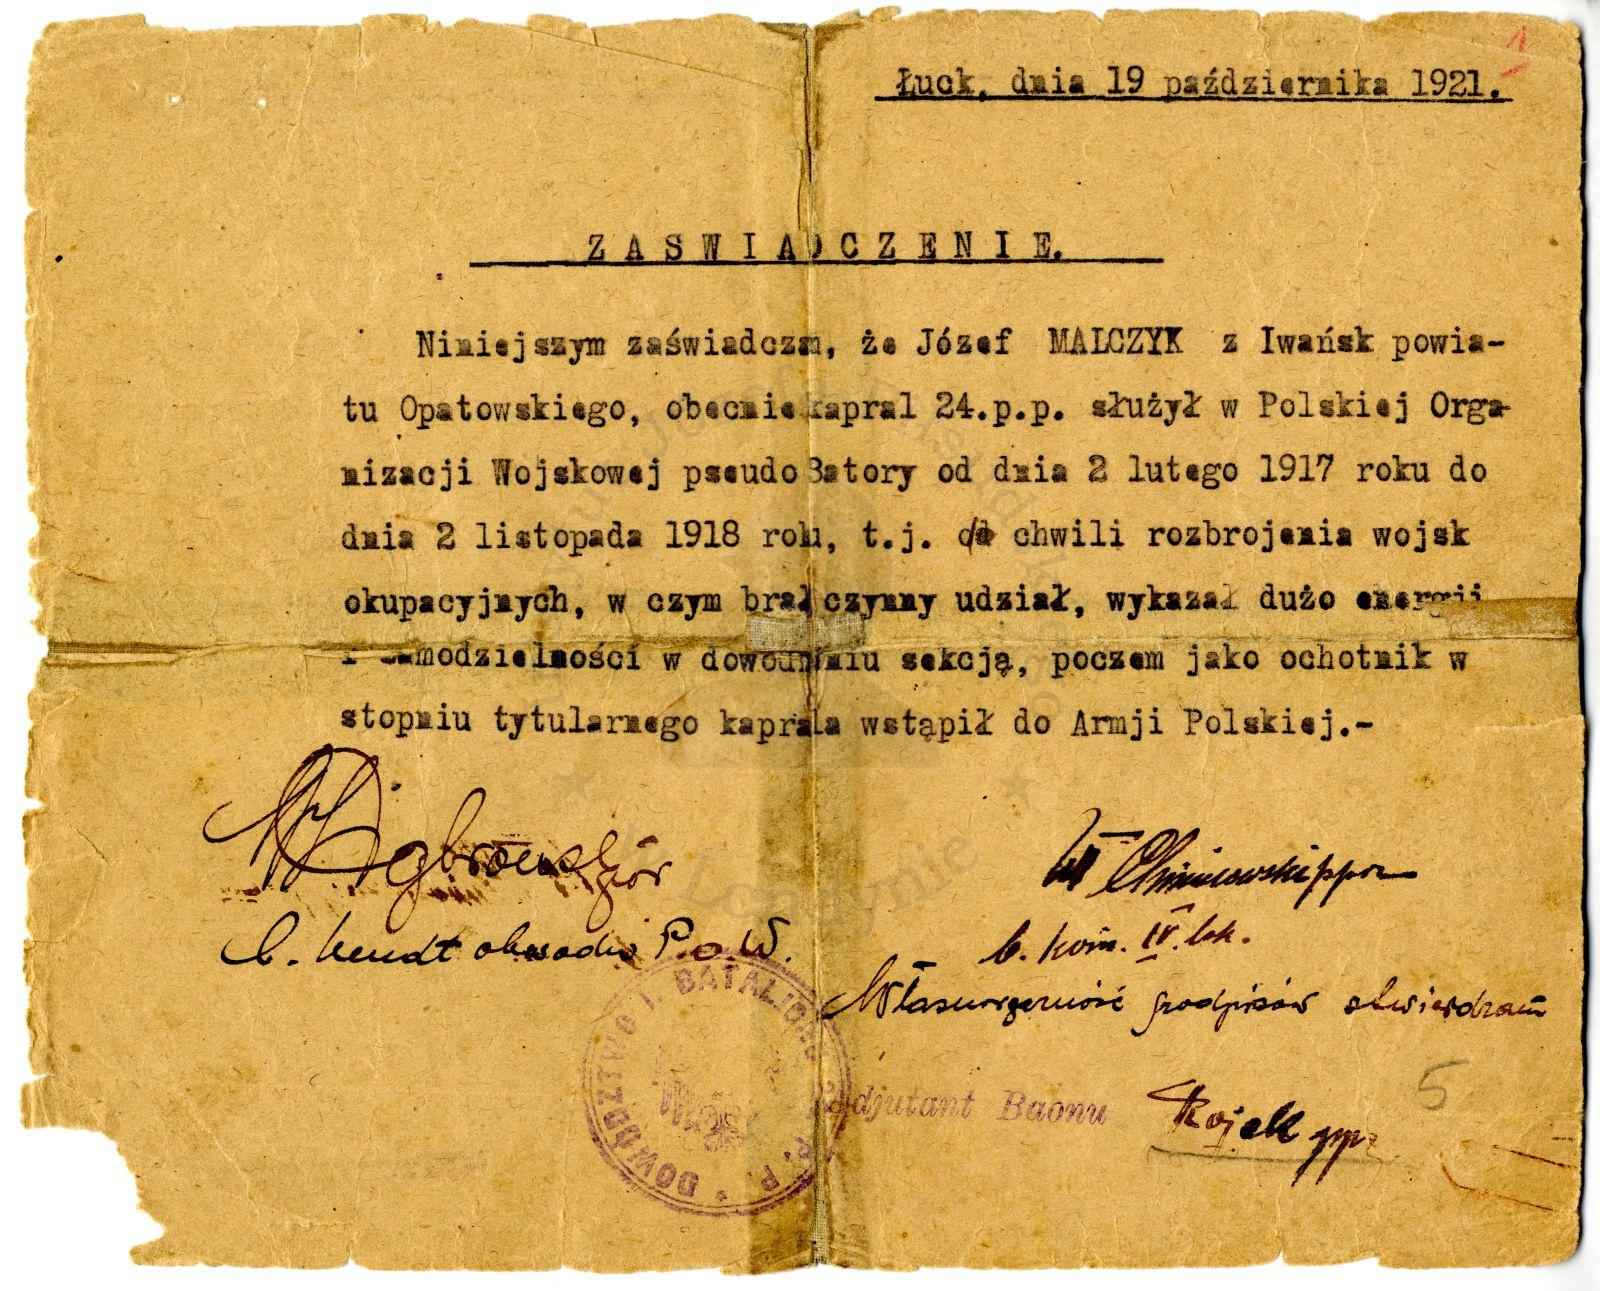 1
Łuck, dnia 19 października 1921.
ZASWIADCZENIE.
Niniejszym zaświadczam, że Józef MALCZYK z Iwańsk powia-
tu Opatowskiego, obecnie kapral 24.p.p. służył w Polskiej Orga-
nizacji Wojskowej pseudo Batory od dnia 2 lutego 1917 roku do
dnia 2 listopada 1918 roku, t.j. do chwili rozbrojenia wojsk
okupacyjnych, w czym brał czynny udział, wykazał dużo energii
i samodzielności w dowodzeniu sekcją, poczem jako ochotnik w
stopniu tytularnego kaprala wstąpił do Armji Polskiej.-
Dąbrowski por
b. kmdt obwodu P.O.W.
W Chmieewski ppor
b. kom. IV. lok.
Własnoręczność podpisów stwierdzam
DOWÓDZTWO I. BATALJONU P. P.
Adjutant Baonu
Rojek ppr.
5
Londynie